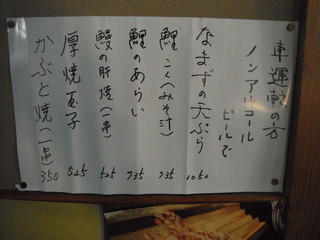 車運転の方
ノンアルコール
ビールで
なまずの天ぷら 1050
鯉こく(みそ汁) 735
鯉のあらい 735
鰻の肝焼(一串) 525
厚焼玉子 525
かぶと焼(一串) 350